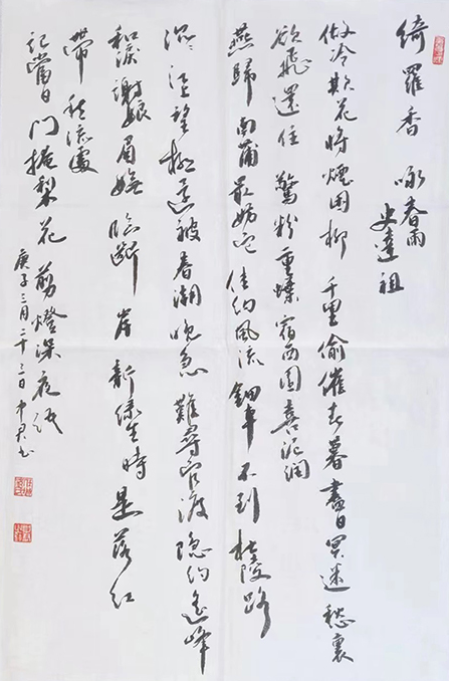 綺羅香 咏春雨
史達祖
做冷欺花將煙困柳 千里偷催春暮 盡日冥迷 愁裏
欲飛還住 驚粉重 蝶宿西園 喜泥潤
燕歸南蒲 最妨它 佳约風流 鈿車不到杜陵路
沉沉江望極還被春潮晚急 難尋官渡 隐约遥峰
和淚謝娘眉嫵 臨斷岸 新绿生時 是落红
帶愁流處
記當日門掩梨花 剪燈深夜語
庚子三月二十三日